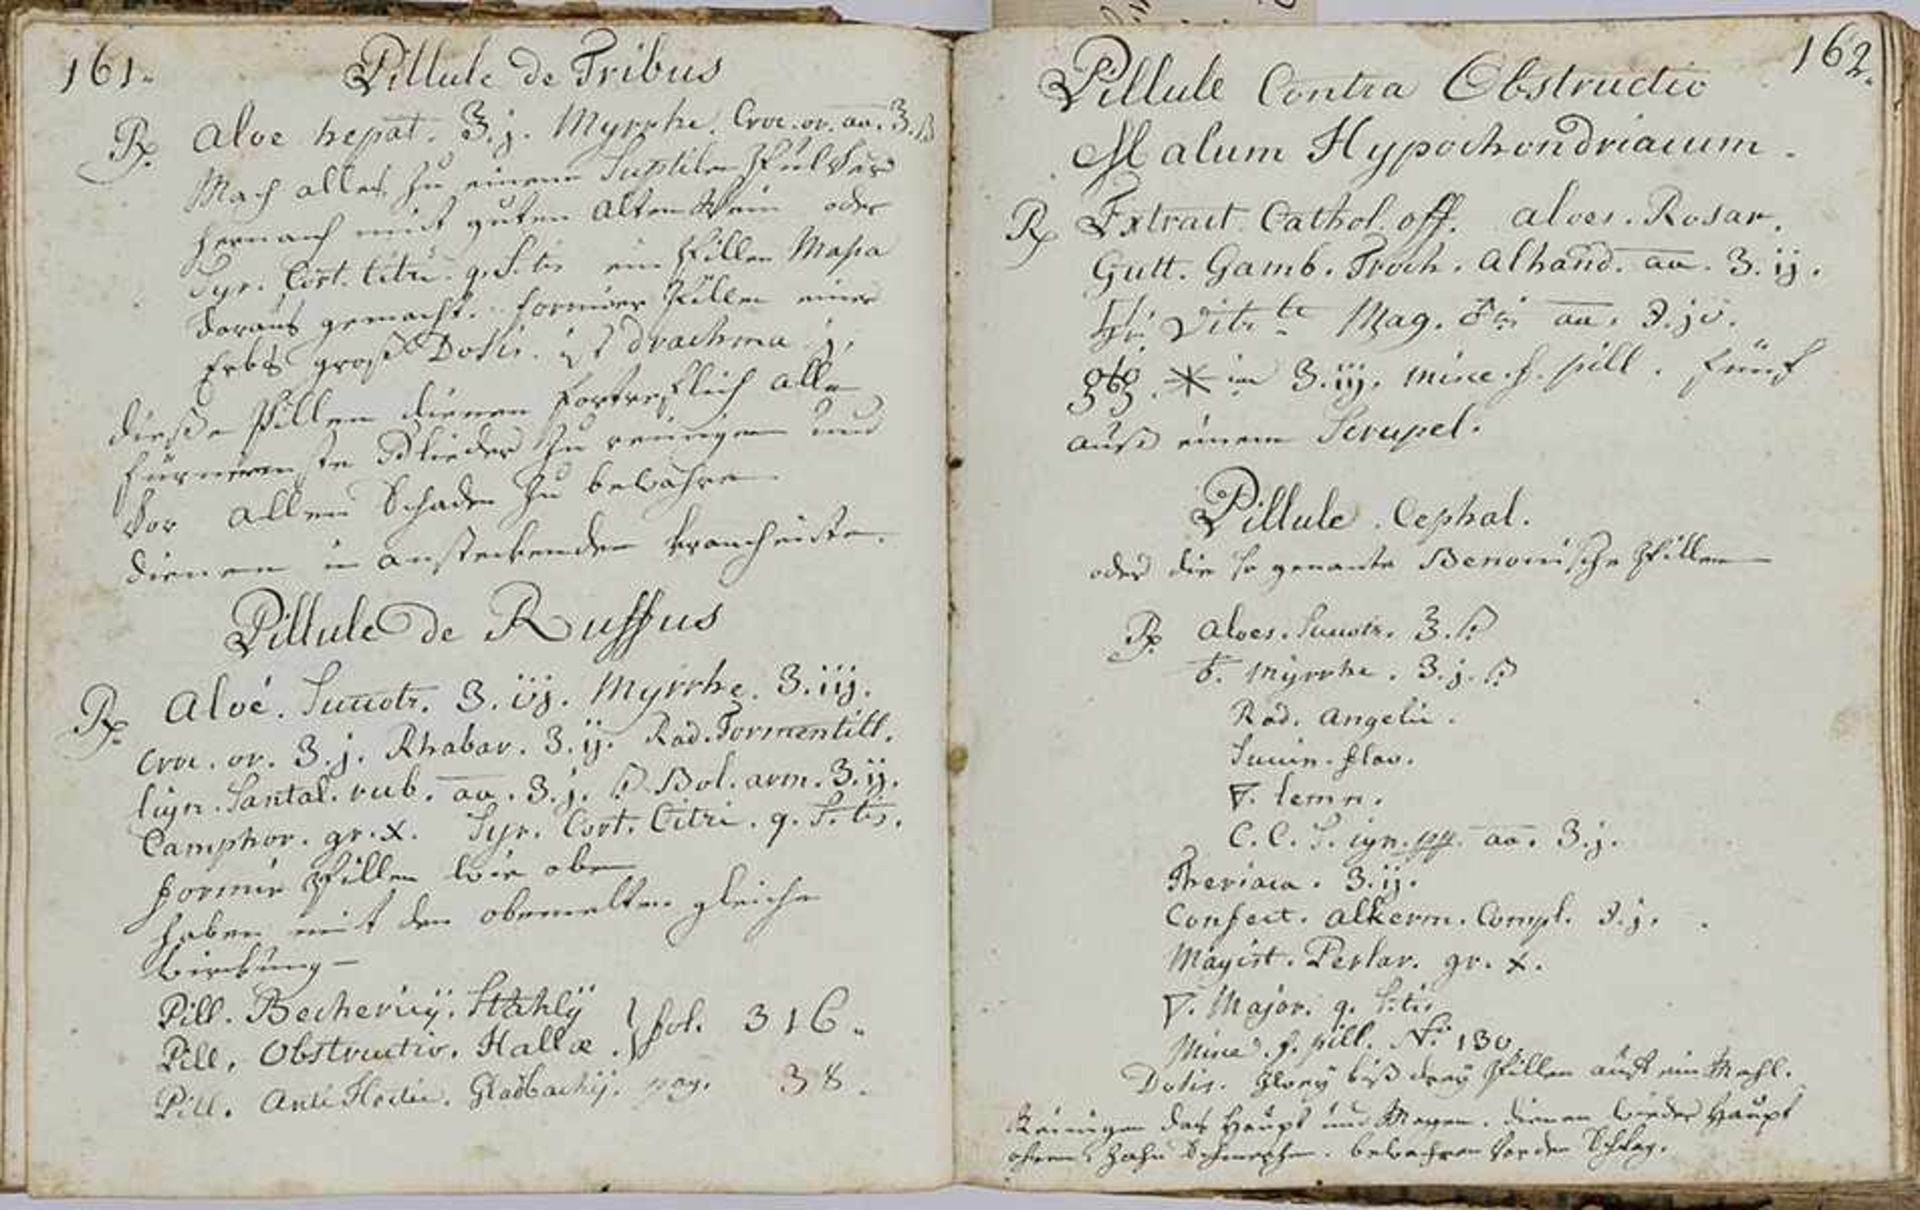 161.
Pillule de Tribus
Rx. Aloe hepat. ʒ.j. Myrrhe. Croc. or. aa. ʒ.ß
Mach alles zu einem Suptilen Pulver
hernach mit guten alten Wein oder
Syr. Cort. Citri. q. S. tis ein Pillen Massa
daraus gemacht. formier Pillen einer
Erbs groß Dosis. ist drachma j.
dieße Pillen dienen fortreflich alle
fürnemste Glieder zu reinigen und
vor allem Schaden zu bewahren
dienen in ansteckenden kranckeiten.
Pillule de Ruffus
Rx. Aloé. Succotr. ʒ.iij. Myrrhe. ʒ.iij.
Croc. or. ʒ.j. Rhabar. ʒ.ij. Rad. Tormentill.
lign. Santal. rub. aa. ʒ.j. ß. Bol. arm. ʒ.ij.
Camphor. gr. x. Syr. Cort. Citri. q. S. tis.
formir Pillen wie oben
haben mit den obemelten gleiche
Wirckung —
Pill. Becherÿ. Stahlÿ
Pill. Obstructio. Hallæ. } fol. 316.
Pill. Anti Hectic. Gladbachÿ. pag. 38.
162.
Pillule Contra Obstructio
Malum Hypochondriacum.
Rx Extract. Cathol. off. aloes. Rosar.
Gutt. Gamb. Troch. Alhand. aa. ʒ.ij.
Mag. aa. ℈.jv.
ʒ.iij. misce. f. pill. fünf
auß einem Scrupel.
Pillule. Cephal.
oder die so genante Pillen
Rx. Aloes. Succotr. ʒ.ß
Myrrhe. ʒ.j.ß
Rad. Angelic.
Succin. flav.
🜃. lemn.
C. C. S. ign. pp. aa. ʒ.j.
Theriaca. ʒ.ij.
Confect. alkerm. Compl. ℈.j.
Magist. Perlar. gr. x.
Major. q. S. tis
Misce. f. pill. No. 130
Dosis. Zwey biß drey Pillen auf ein Mahl.
Reinigen das Haupt und Magen. dienen wieder Haupt
ohren Zahn Schmerzen. bewahren vor den Schlag.